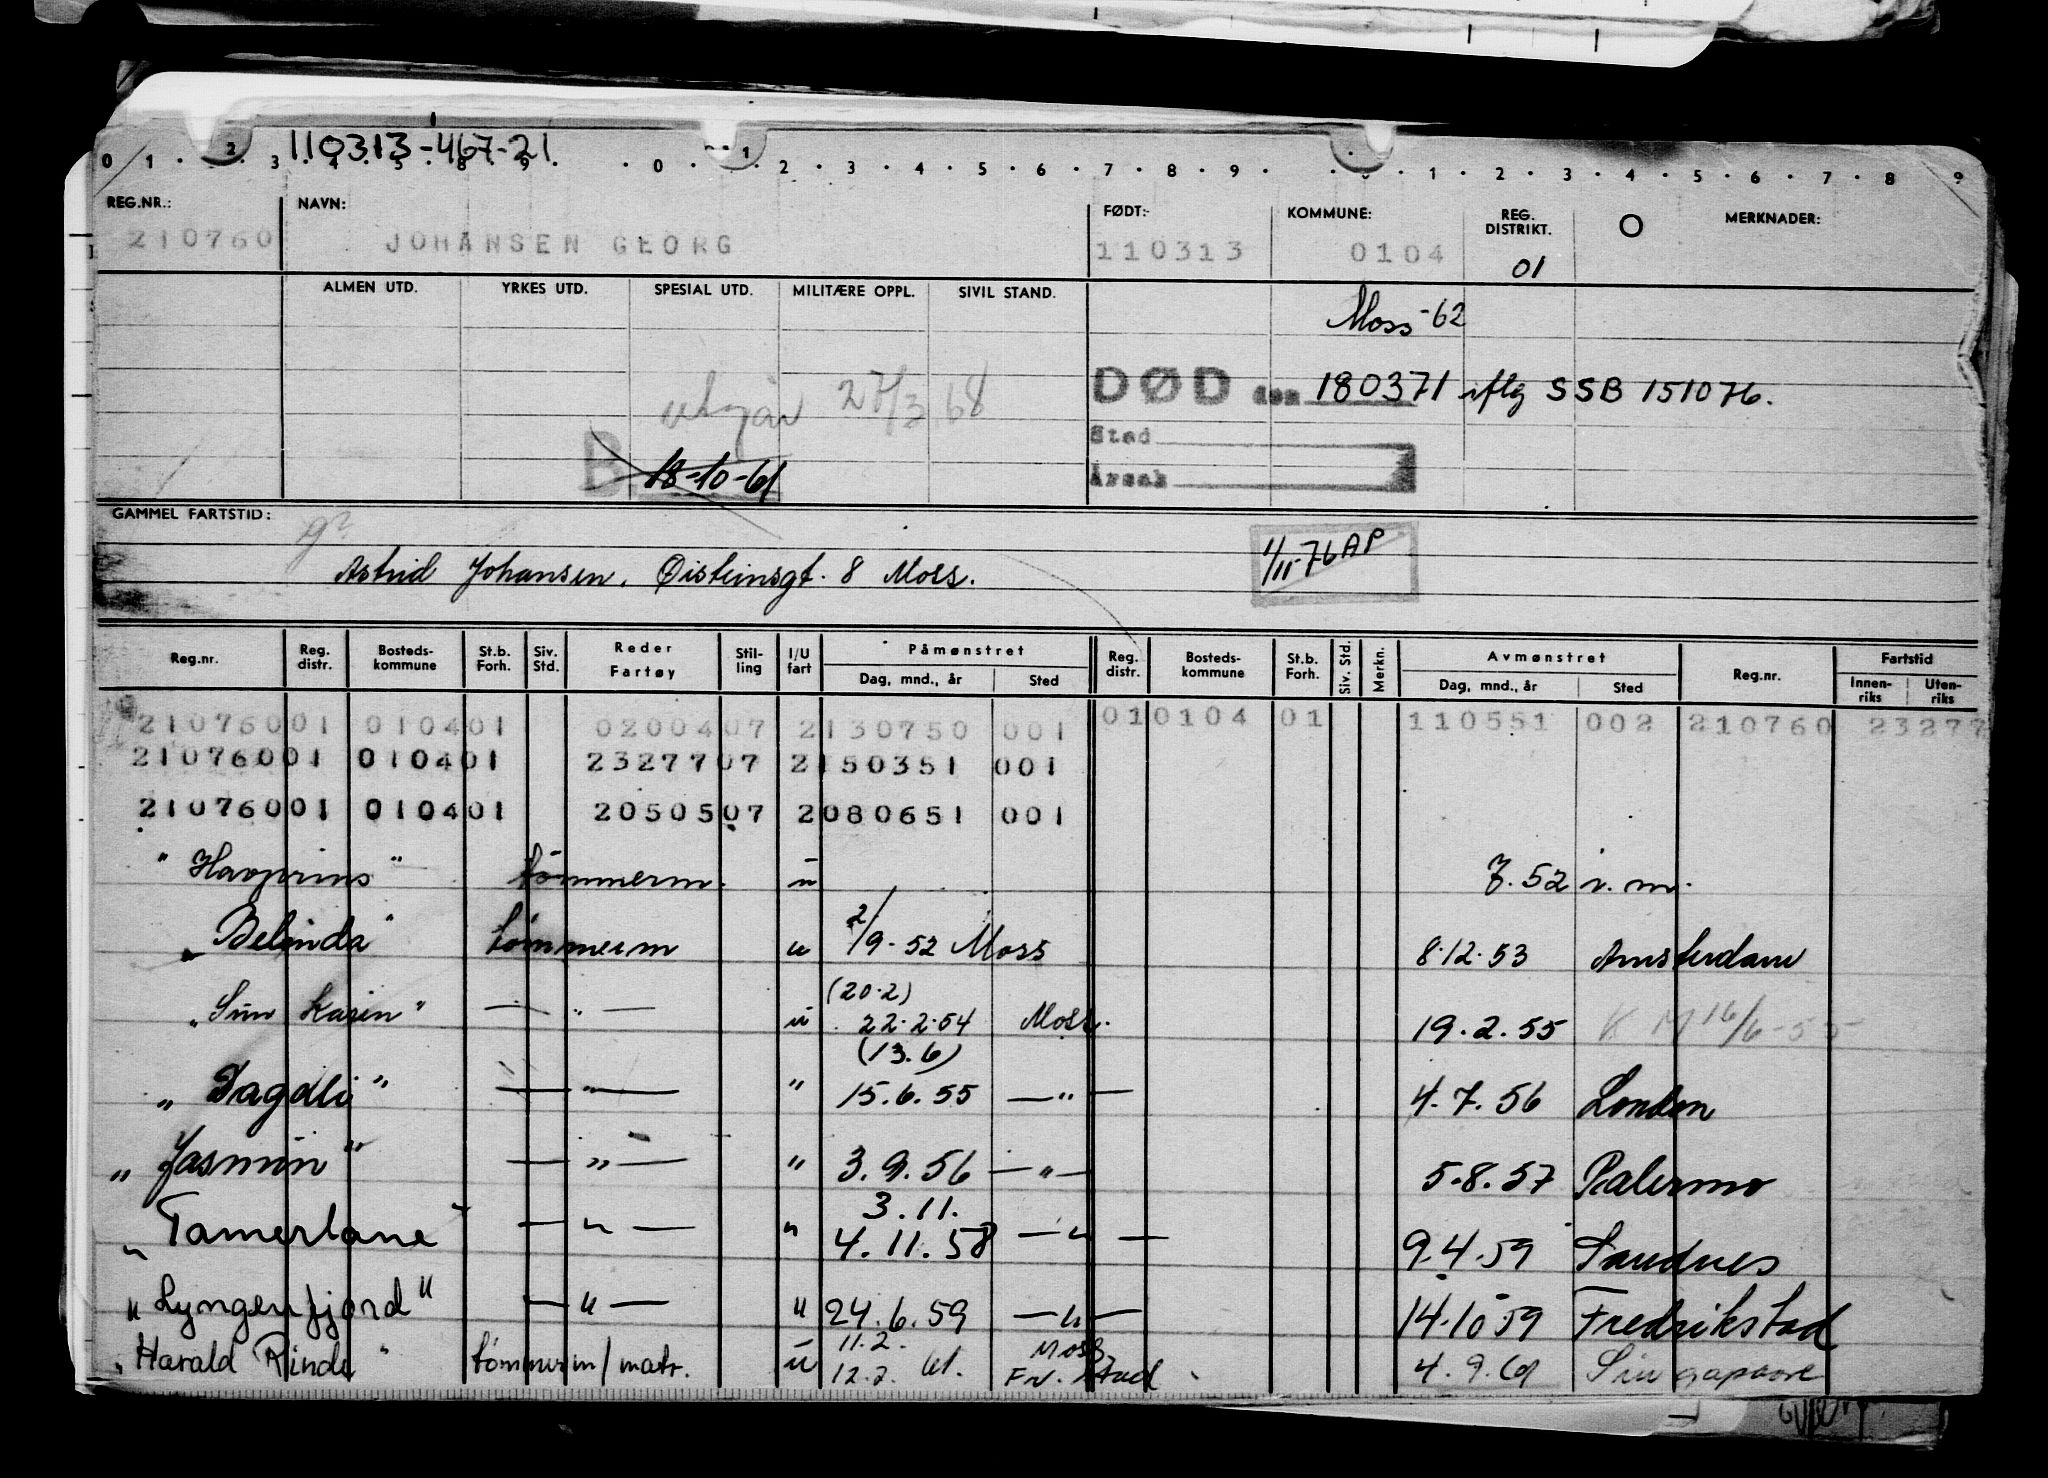 110313-467-21
0 1 2 3 4 5 8 9 0 1 2 3 4 5 6 7 8 9 1 2 3 4 5 6 7 8 9
REG.NR.: NAVN: FØDT: KOMMUNE: REG. DISTRIKT. MERKNADER:
210760 JOHANSEN GEORG 110313 0104 01
ALMEN UTD. YRKES UTD. SPESIAL UTD. MILITÆRE OPPL. SIVIL STAND.
Moss -62
utgår 27/3.68
DØD den 180371 iflg SSB 151076.
Sted
B 18-10-61
Årsak
GAMMEL FARTSTID:
1/11-76 AP
Astrid Johansen, Øisteinsgt. 8 Moss.
Reg.nr. Reg. distr. Bosteds-kommune St.b. Forh. Siv. Std. Reder Fartøy Stil-ling I/U fart Påmønstret Dag, mnd., år Sted Reg. distr. Bosteds-kommune St.b. Forh. Siv. Std. Merkn. Avmønstret Dag, mnd., år Sted Reg.nr. Fartstid Innen-riks Uten-riks
21076001 010401 0200407 2130750 001 010104 01 110551 002 210760 23277
21076001 010401 2327707 2150351 001
21076001 010401 2050507 2080651 001
"Havprins" tømmerm. u 7.52 i.m.
"Belinda" tømmerm u 2/9-52 Moss 8.12.53 Amsterdam
(20.2)
"Sun Karin" — " — u 22.2.54 Moss. 19.2.55 K M 16/6-55
(13.6)
"Dagali" — " — " 15.6.55 — " — 4.7.56 London
"Jasmin" — " — " 3.9.56 — " — 5.8.57 Palermo
3.11.
"Tamerlane" — " — " 4.11.58 — " — 9.4.59 Sandnes
"Lyngenfjord" — " — " 24.6.59 — " — 14.10.59 Fredrikstad
11.2. Moss
"Harald Rinde" tømmerm/matr. u 12.2. 61. Fr.stad 4.9.61 Singapore